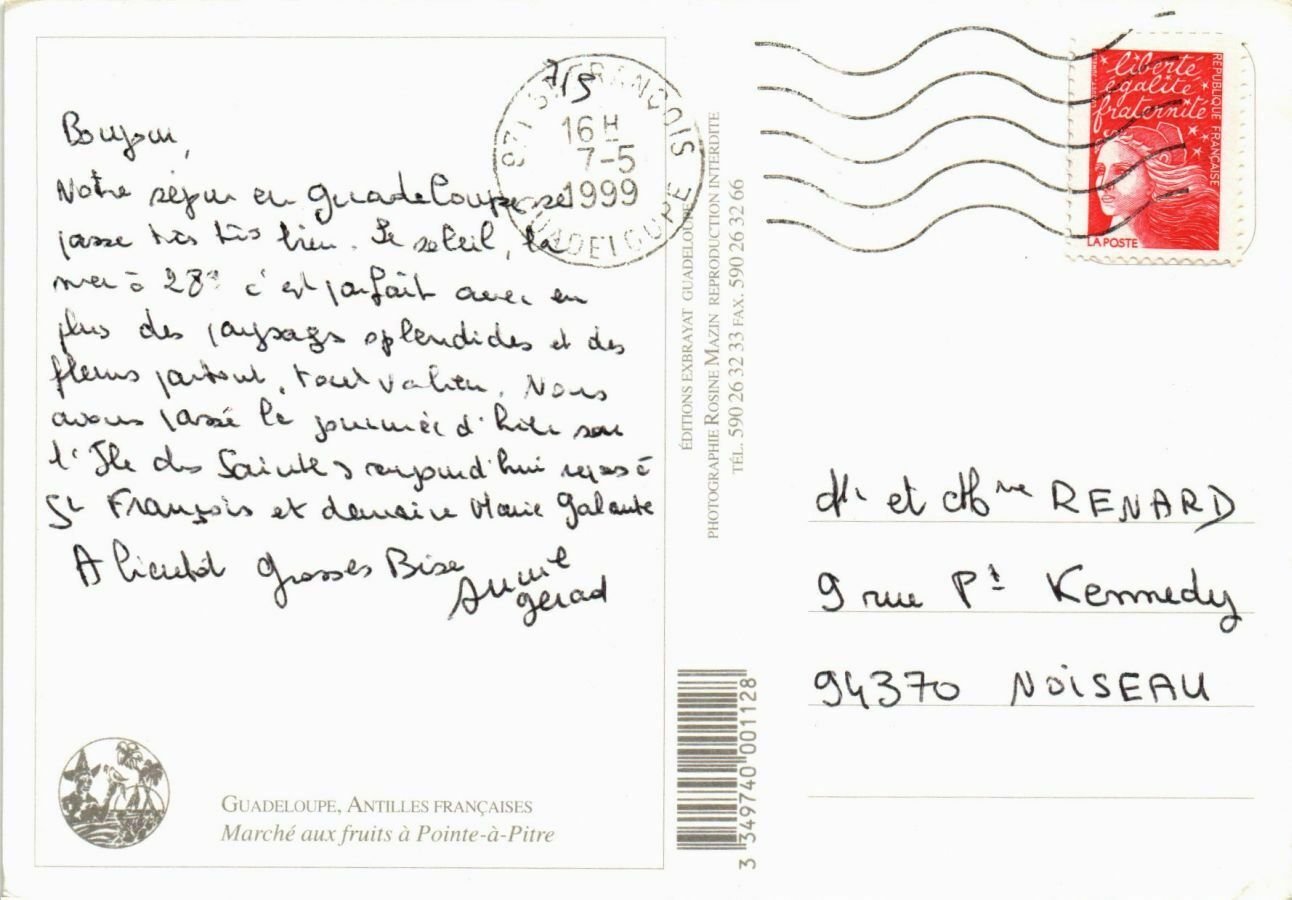 7/5
Bonjour,
Notre séjour en Guadeloupe se
passe très très bien. Le soleil, la
mer à 28° c'est parfait avec en
plus des paysages splendides et des
fleurs partout, tout va bien. Nous
avons passé la journée d'hier sur
l'Ile des Saintes aujourd'hui repos à
St François et demain Marie Galante
A bientôt Grosses Bises
Annie
Gérard
GUADELOUPE, ANTILLES FRANÇAISES
Marché aux fruits à Pointe-à-Pitre
971 ST FRANCOIS
16 H
7-5
1999
GUADELOUPE
ÉDITIONS EXBRAYAT GUADELOUPE
PHOTOGRAPHIE ROSINE MAZIN REPRODUCTION INTERDITE
TÉL. 590 26 32 33 FAX. 590 26 32 66
3 349740 001128
liberté
égalité
fraternité
RÉPUBLIQUE FRANÇAISE
LA POSTE
Mr et Mme RENARD
9 rue Pt Kennedy
94370 NOISEAU